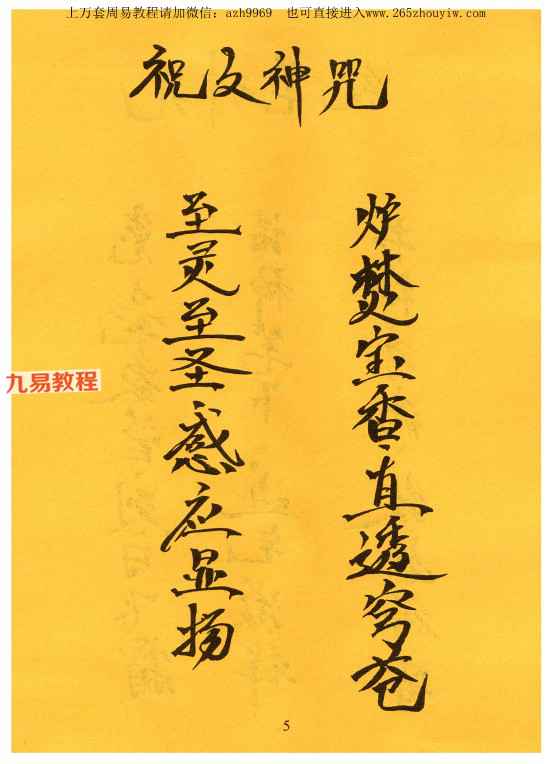 上万套周易教程请加微信：azh9969　也可直接进入www.265zhouyiw.com
祝文神咒
炉焚宝香、直透穹苍
至灵至圣、感应显扬
九易教程
5